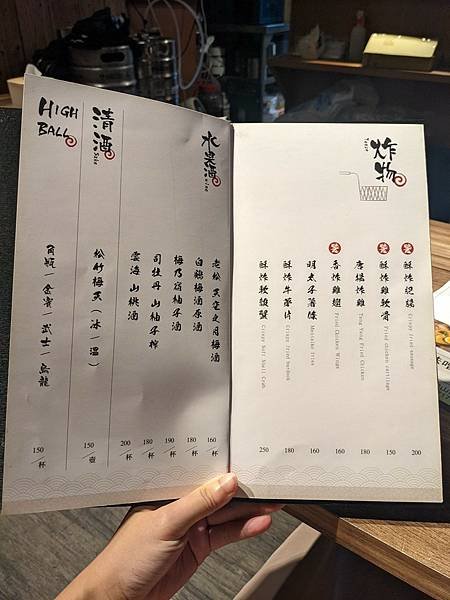 炸物
酥炸想腸 Crispy fried sausage 200
酥炸雞軟骨 Fried chicken cartilage 150
唐揚炸雞 Tang Yang Fried Chicken 180
香炸雞翅 Fried Chicken Wings 160
明太子薯條 Mentaiko fries 160
酥炸牛蒡片 Crispy fried burdock 180
酥炸軟殼蟹 Crispy Soft Shell Crab 250
水果酒
老松 天空之月梅酒 160/杯
白鶴梅酒原酒 180/杯
梅乃宿柚子酒 190/杯
司牡丹 山柚子搾 180/杯
雲海 山桃酒 200/杯
清酒 Sake
松竹梅 天(冰|溫) 150/壺
HIGH BALL
角瓶|金賓|武士|烏龍 150/杯